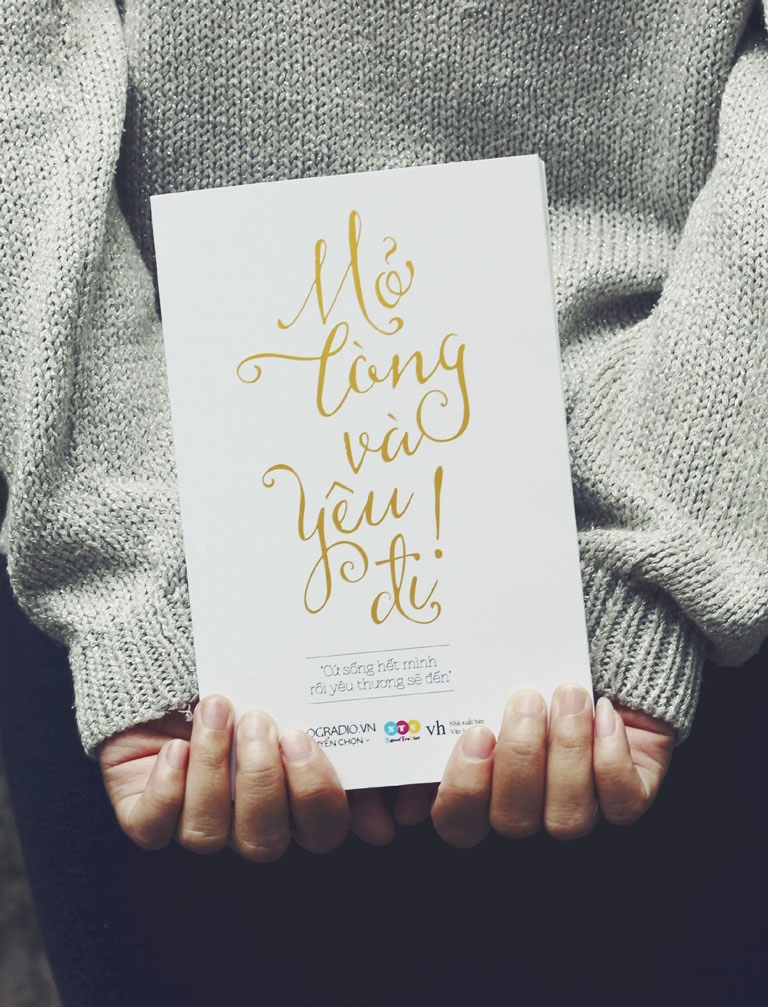 Mở
lòng
và
yêu
đi!
'Cứ sống hết mình
rồi yêu thương sẽ đến'
OGRADIO.VN
YỂN CHỌN -
XTY
vh
Nhà xuất bản